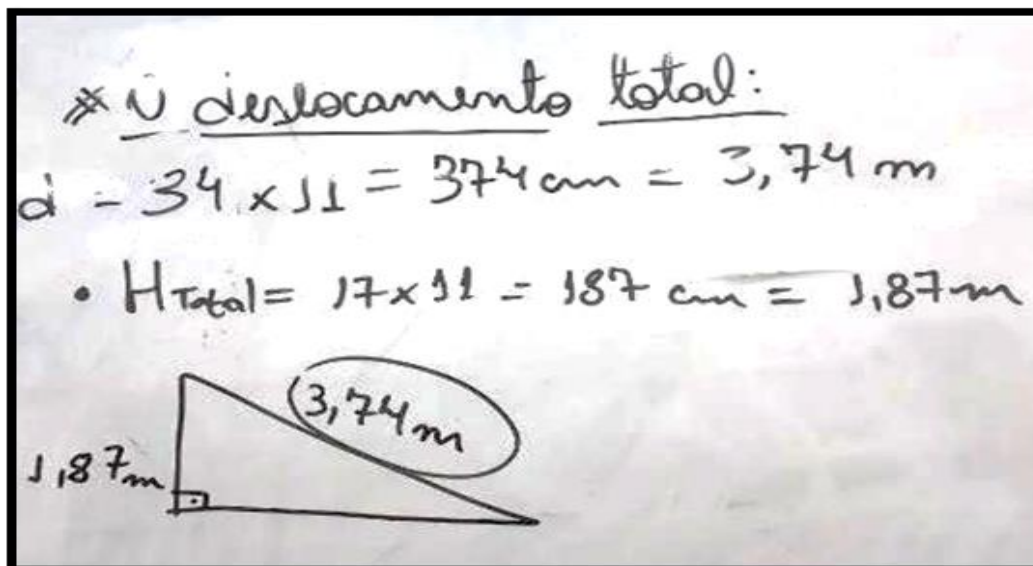 * O deslocamento total:
d = 34 x 11 = 374 cm = 3,74 m
• H Total = 17 x 11 = 187 cm = 1,87 m
3,74 m
1,87 m